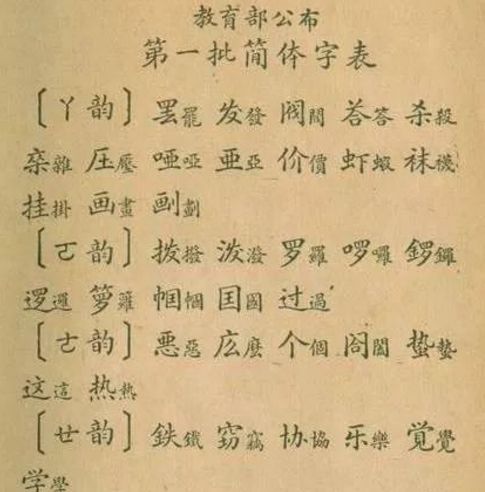 教育部公布
第一批简体字表
〔ㄚ韵〕罢罷 发發 阀閥 荅答 杀殺
杂雜 压壓 哑啞 亚亞 价價 虾蝦 袜襪
挂掛 画畫 劃
〔ㄛ韵〕拨撥 泼潑 罗羅 啰囉 锣鑼
逻邏 箩籮 帼幗 国國 过過
〔ㄜ韵〕恶惡 庅麼 个個 阁閣 蛰蟄
这這 热熱
〔ㄝ韵〕鉄鐵 窃竊 协協 乐樂 觉覺
学學